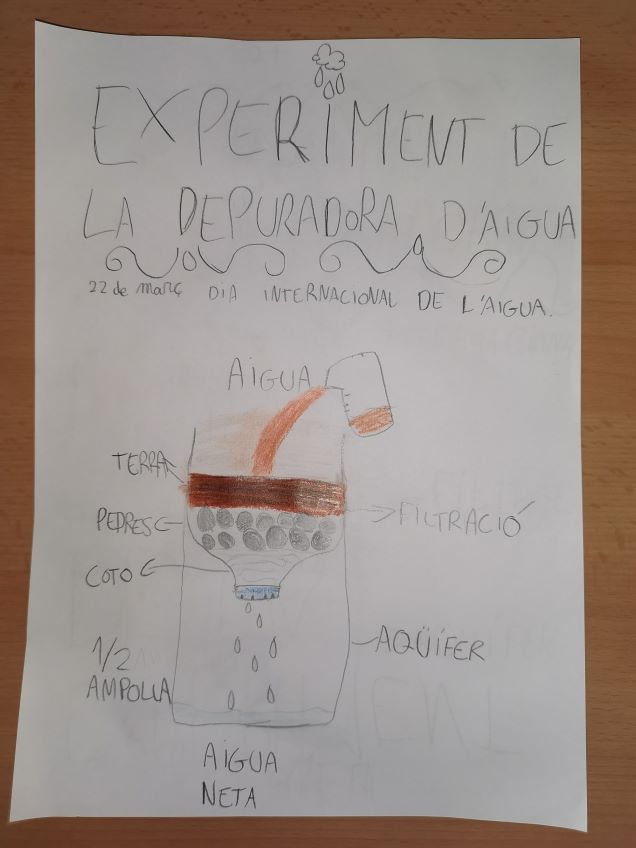 EXPERIMENT DE
LA DEPURADORA D'AIGUA
22 de març DIA INTERNACIONAL DE L'AIGUA.
AIGUA
TERRA
PEDRES
FILTRACIÓ
COTO
1/2
AMPOLLA
AQÜÍFER
AIGUA
NETA